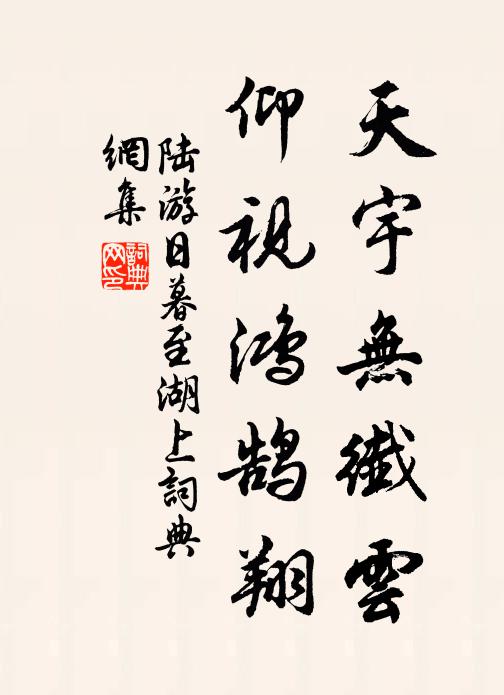 天宇無纖雲
仰視鴻鹄翔
陆游日暮至湖上詞典
網集
詞典
网印